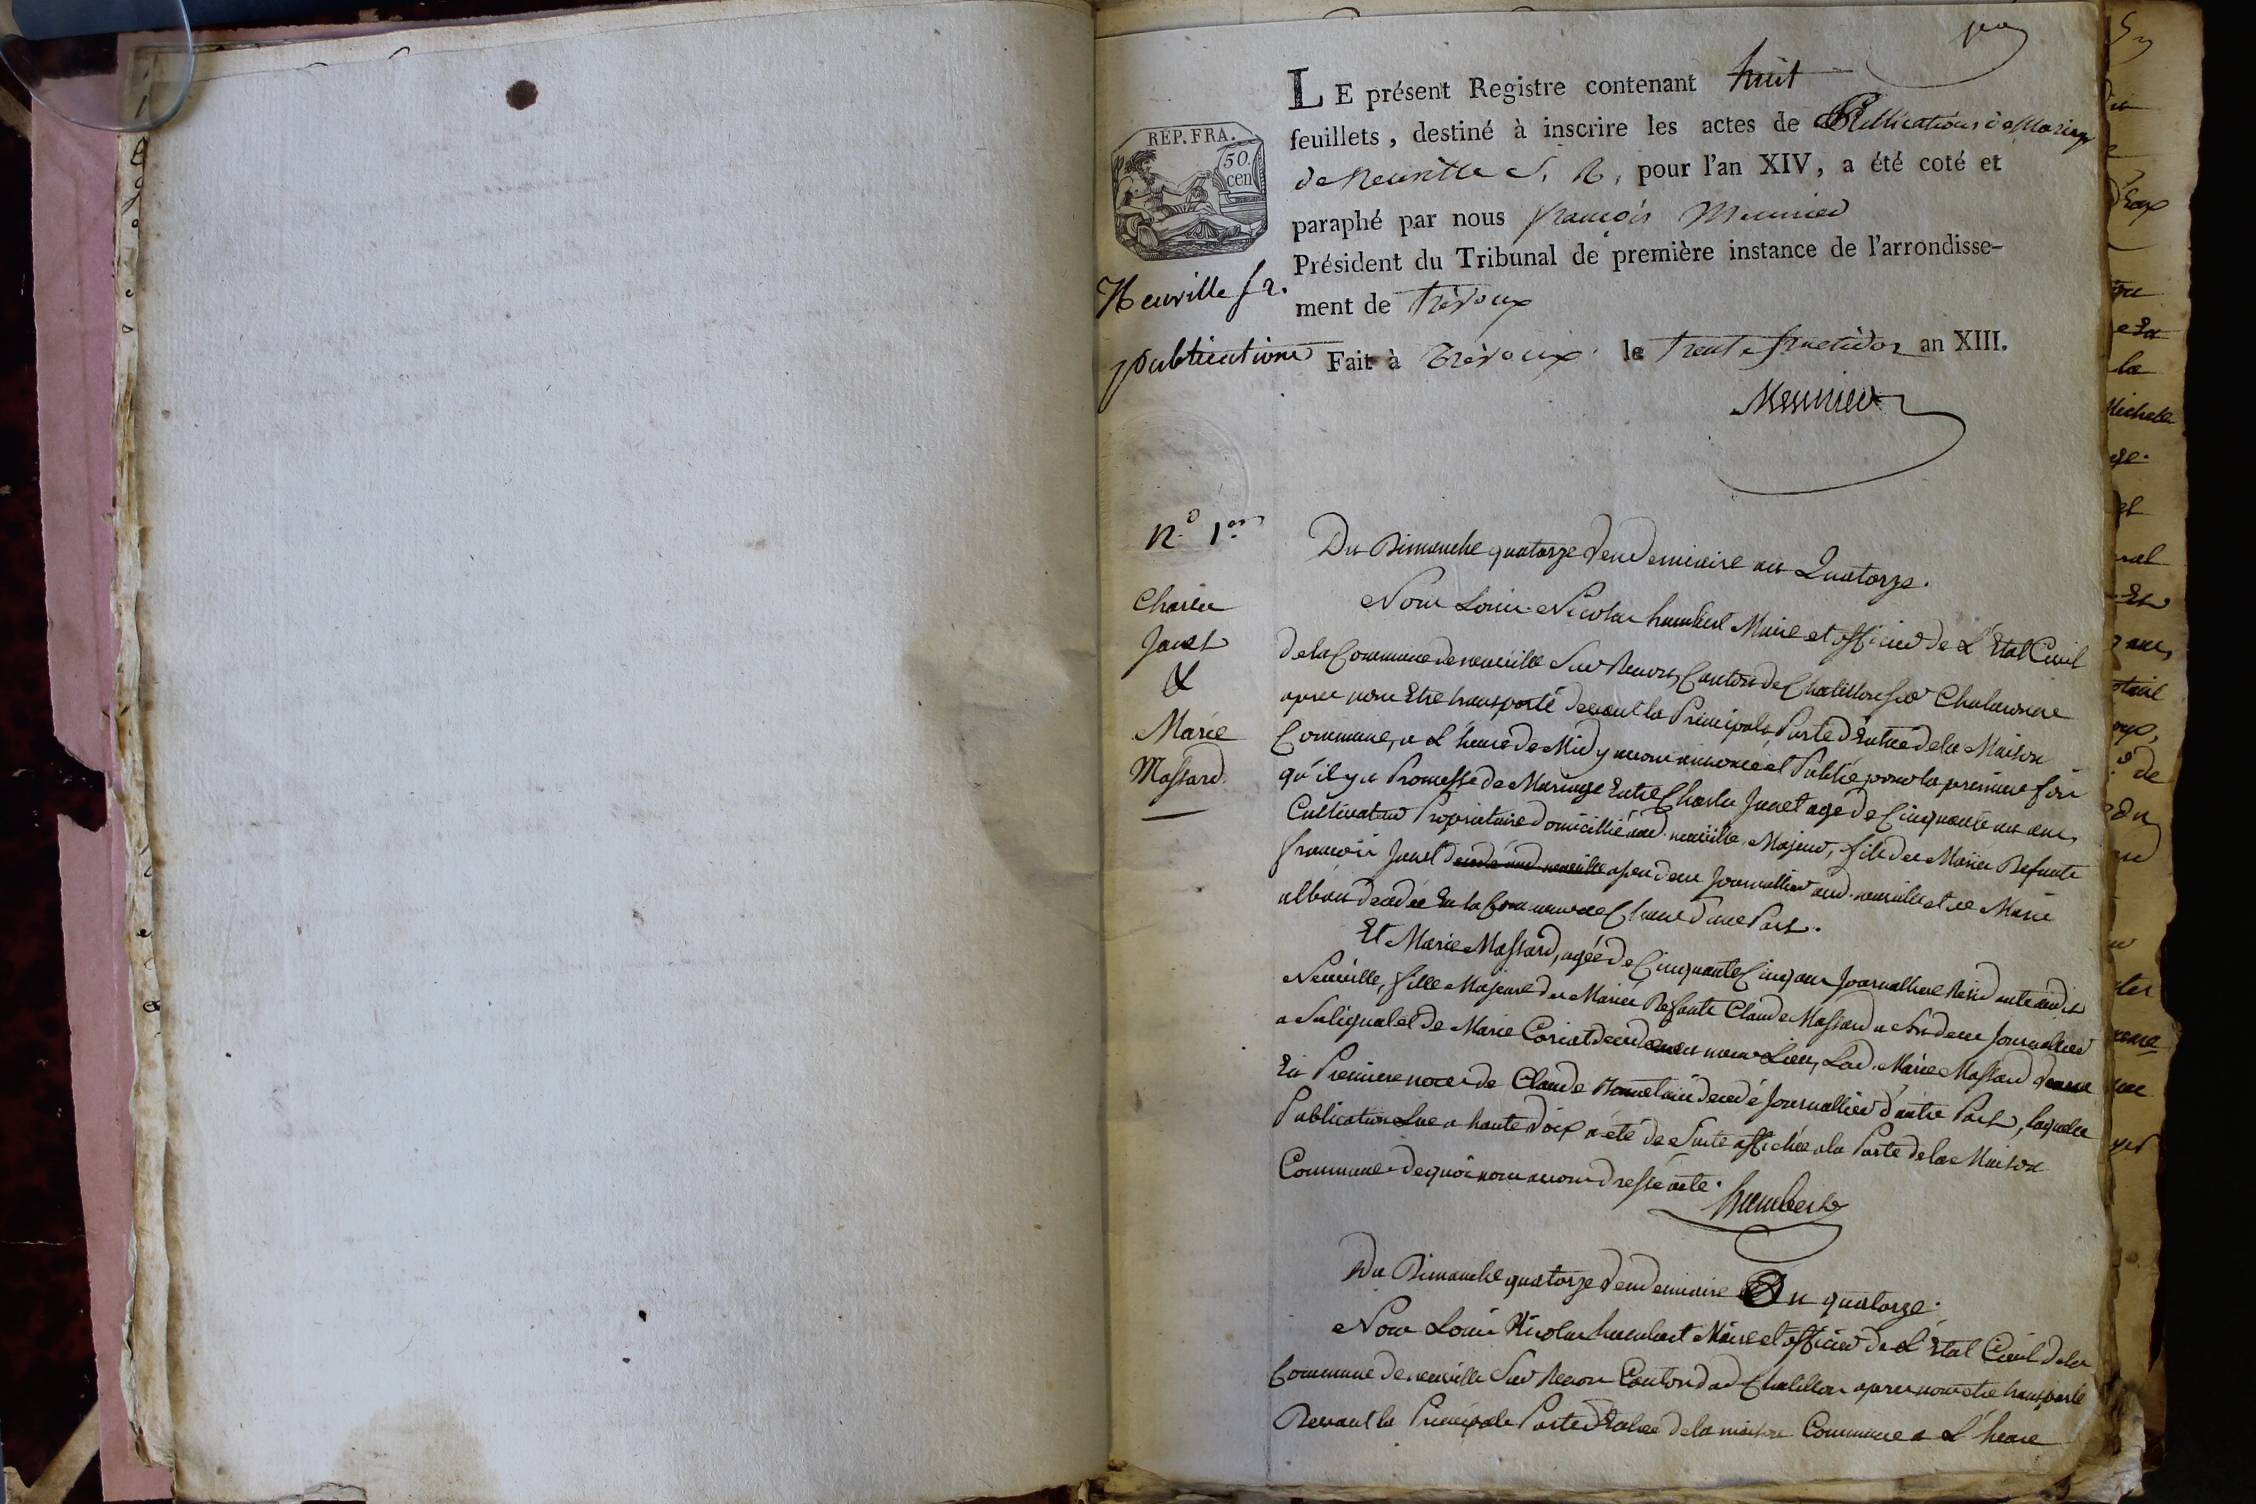 REP. FRA.
50.
cen
LE présent Registre contenant huit
feuillets, destiné à inscrire les actes de Publications de Mariage
de Neuville S. R, pour l'an XIV, a été coté et
paraphé par nous françois Meunier
Président du Tribunal de première instance de l'arrondisse-
ment de Trévoux
Fait à Trévoux le trente fructidor an XIII.
Meunier
Neuville s. r.
publications
N.° 1er
Charles
Janet
&
Marie
Massard.
Du Dimanche quatorze Vendemiaire an Quatorze.
Nous Louis Nicolas humbert Maire et officier de L'Etat Civil
de la Commune de neuville Sur Renon, Canton de Chatillon sur Chalaronne
apres nous Etre transporté devant la Principale Porte d'Entrée de la Maison
Commune, a L'heure de Midy avons annoncé et Publié pour la premiere fois
qu'il y a Promesse de Mariage Entre Charles Janet agé de Cinquante un ans,
Cultivateur Proprietaire domicillié aud. neuville, Majeur, fils des Mariés Defunts
francois Janet decedé aud neuville journallier aud. neuville et de Marie
alban decedée En la Commune de d'une Part.
Et Marie Massard, agée de Cinquante Cinq ans Journalliere Residante audit
Neuville, fille Majeure des Mariés Defunts Claude Massard a Son deces Journallier
a Sulignat et de Marie Coriat decedée au meme Lieu, Lad. Marie Massard Veuve
En Premiere noces de Claude decedé Journallier d'autre Part, laquelle
Publication Lue a haute Voix a été de Suite affichée a la Porte de la Maison
Commune. de quoi nous avons dressé acte.
humbert
Du Dimanche quatorze Vendemiaire An quatorze.
Nous Louis Nicolas humbert Maire et officier de L'Etat Civil de la
Commune de neuville Sur Renon Canton de Chatillon apres nous etre transporté
Devant la Principale Porte d'Entrée de la maison Commune a L'heure